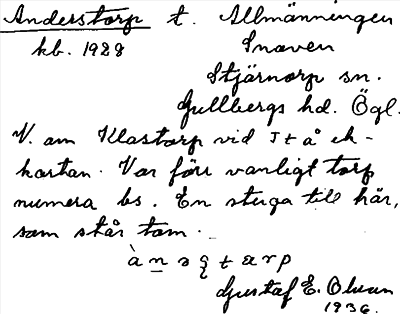 Anderstorp t. Allmänningen
kb. 1928 Snaven
Stjärnorp sn.
Gullbergs hd. Ögl.
V. om Klostorp vid J t å ek-
kartan. Var förr vanligt torp
numera bs. En stuga till här,
som står tom.
Gustaf E. Olson
1936.